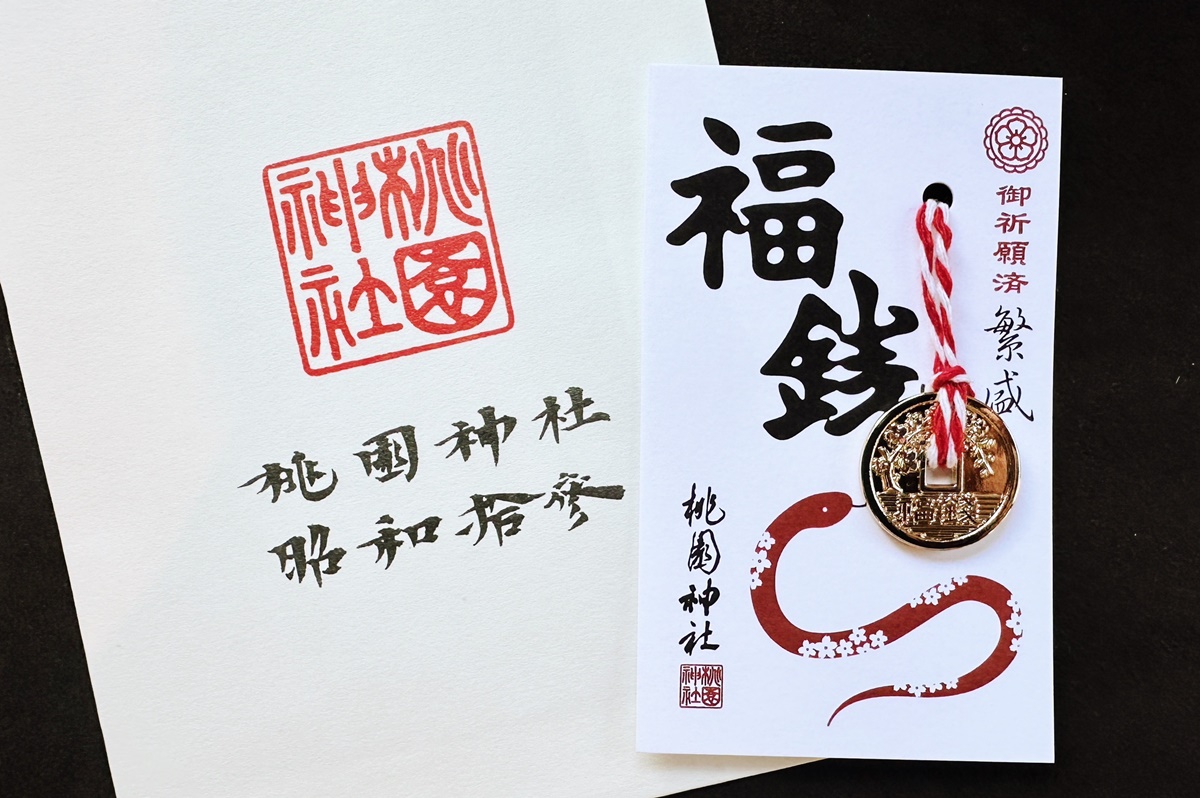 桃園
神社
桃園神社
昭和拾參
福錢
御祈願済
繁盛
福錢
桃園神社
桃園
神社